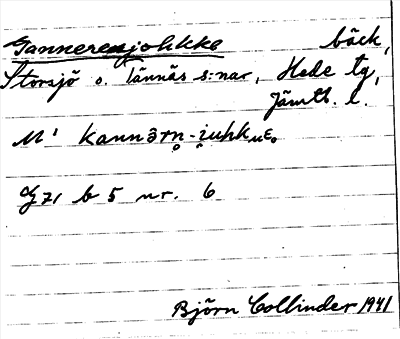 Gannerenjohkke bäck,
Storsjö o. Tännäs s:nar, Hede tg,
Jämtl. l.
M' kannǝrn̥-i̯uhkᵤᴇ.
G 71 b 5 nr. 6
Björn Collinder 1941